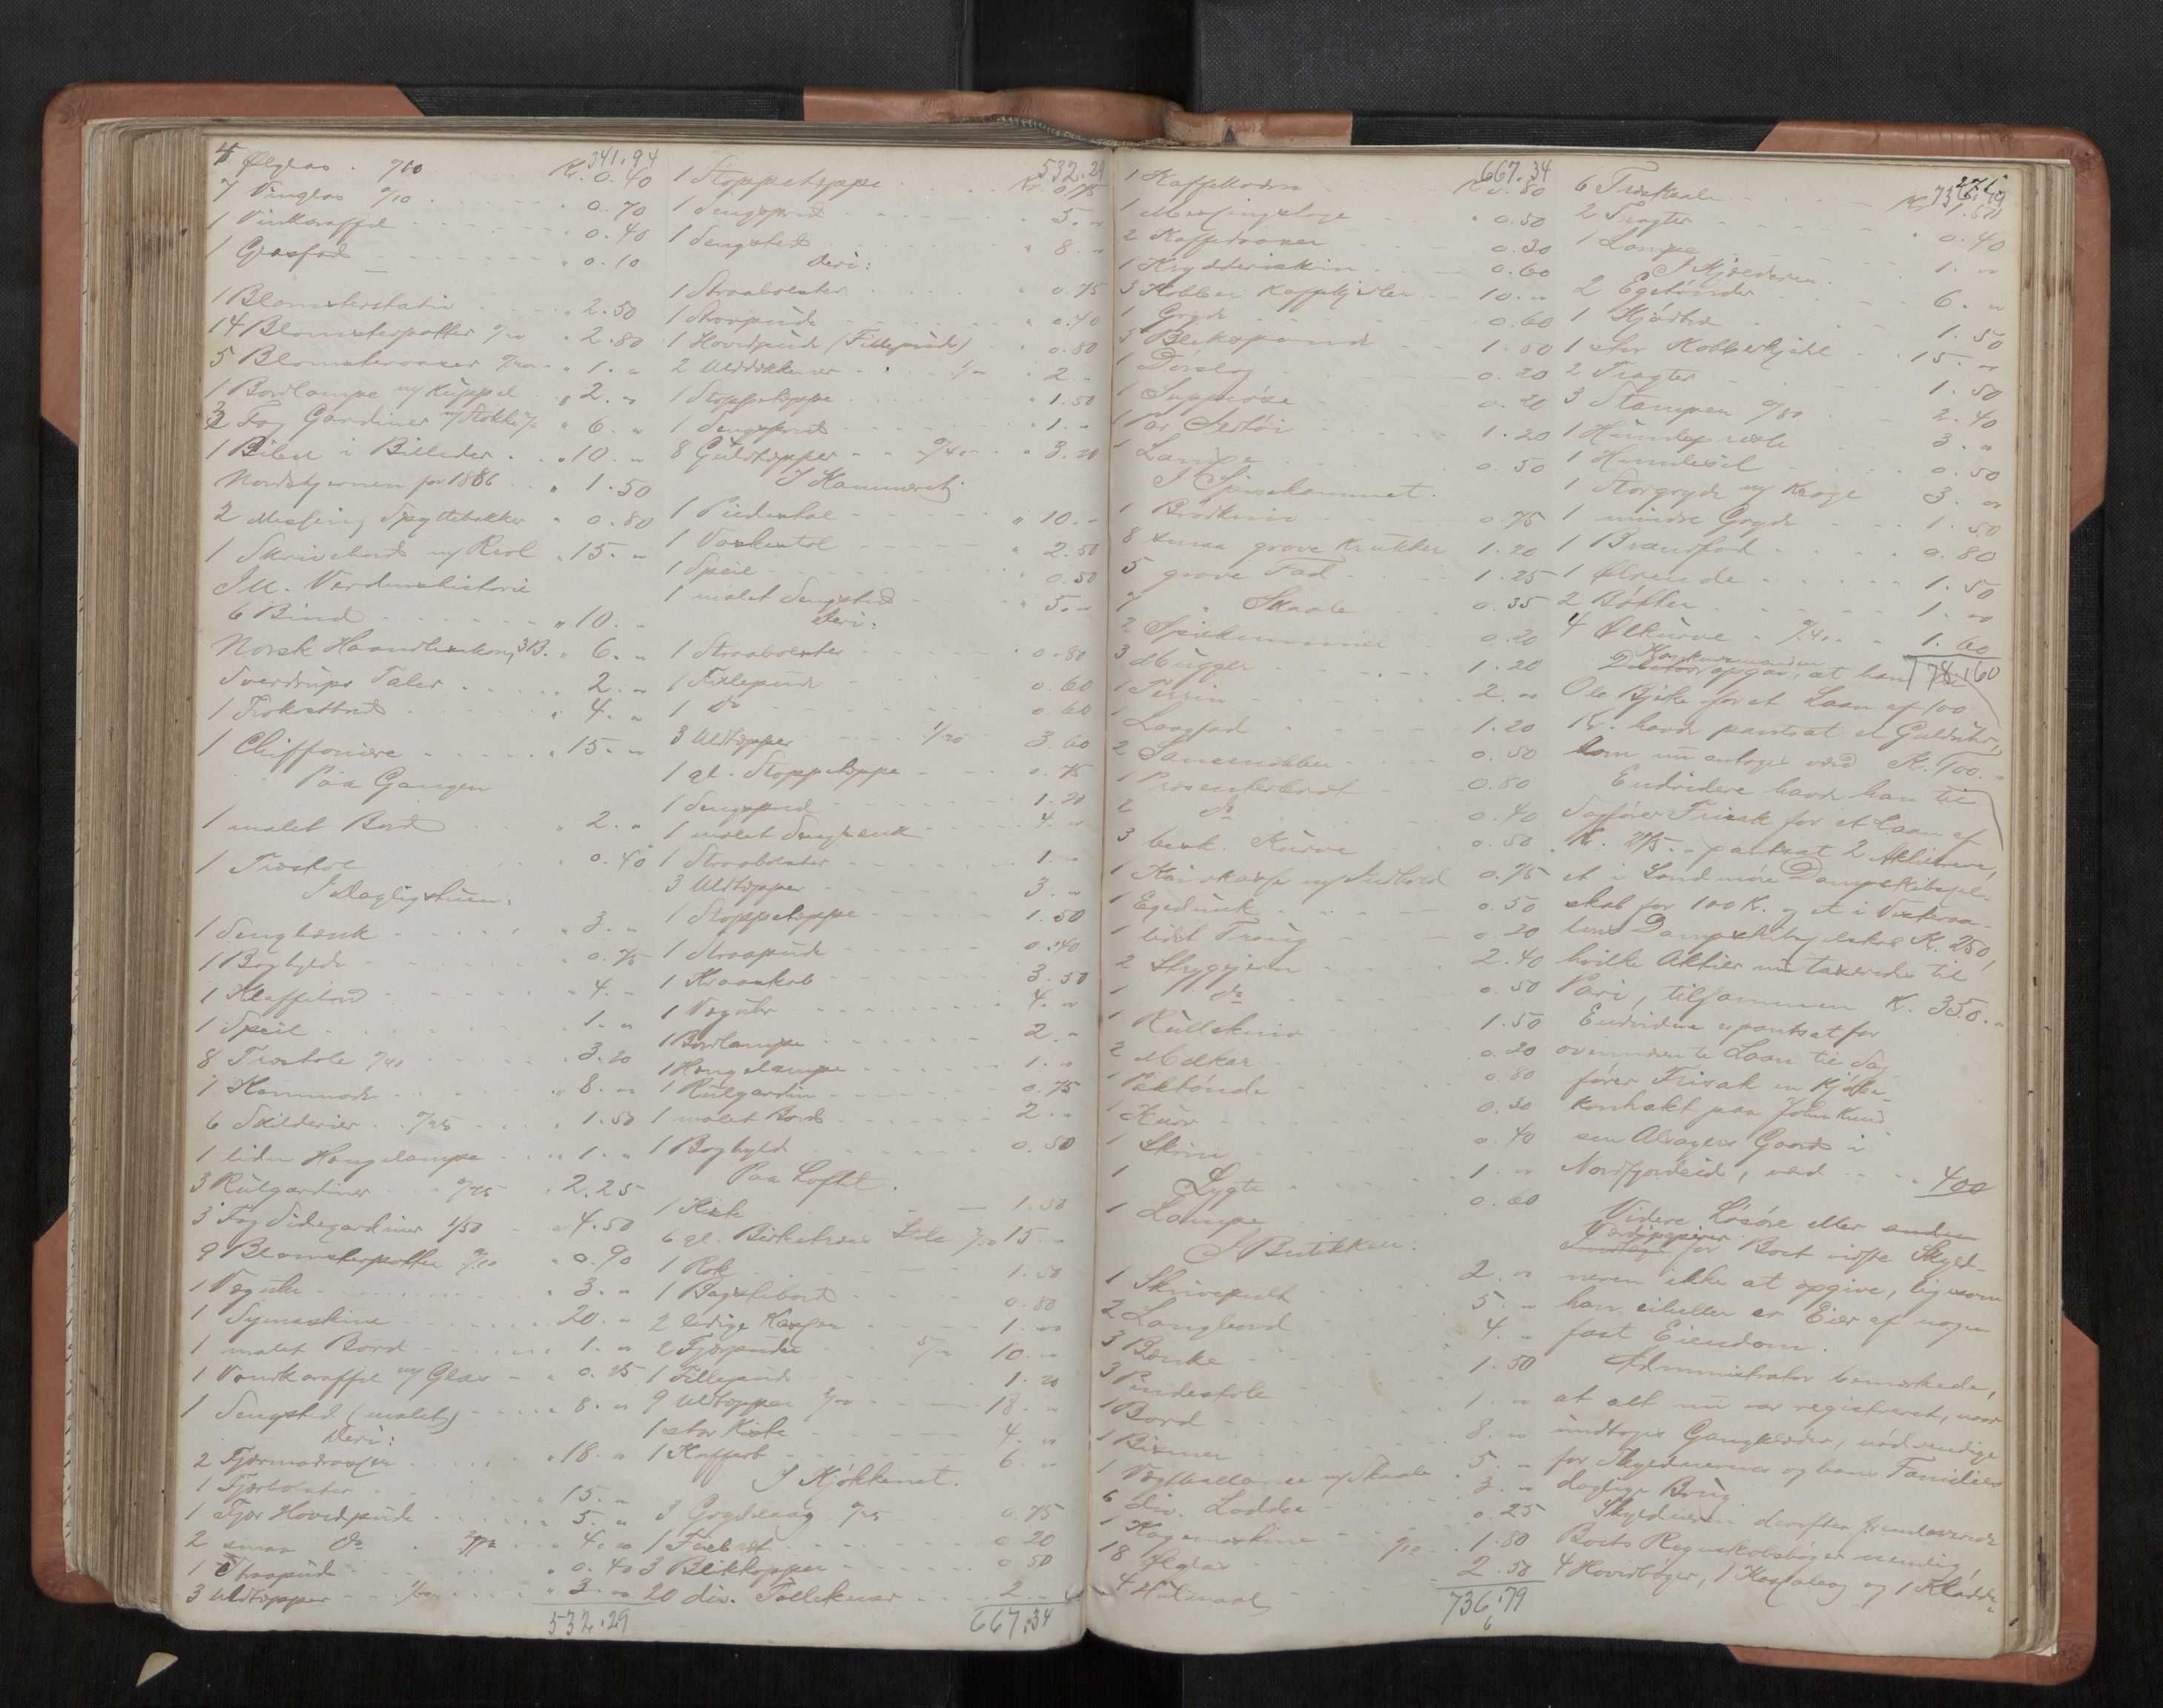 341.94
4 Ølglas . 0/10 Kr. 0.40
7 Vinglas 0/10 " 0.70
1 Vinkaraffel " 0.40
1 Glasfad " 0.10
1 Blomsterstativ " 2.50
14 Blomsterpotter 0/20 " 2.80
5 Blomstervaser 0/20 " 1. "
1 Bordlampe m/ Kuppel " 2. "
3 Fag Gardiner m/ Stokke 2/" " 6. "
1 Bibel i Billeder " 10. "
Nordstjernen for 1886 " 1.50
2 Messing Spyttebakker " 0.80
1 Skrivebord m/ Reol " 15. "
Ill. Verdenshistorie
6 Bind " 10. "
Norsk Haandlexikon, 3 B. " 6. "
Sverdrups Taler " 2. "
1 Frokostbord " 4. "
1 Chiffoniere " 15. "
Paa Gangen
1 malet Bord " 2. "
1 Træstol " 0.40
I Dagligstuen:
1 Sengbænk " 3. "
1 Boghylde " 0.75
1 Klaffebord " 4. "
1 Speil " 1. "
8 Træstole 0/40 " 3.20
1 Kommode " 8. "
6 Skilderier 0/25 " 1.50
1 liden Hængelampe " 1. "
3 Rulgardiner 0/75 " 2.25
3 Fag Sidegardiner 1/50 " 4.50
9 Blomsterpotter 0/10 " 0.90
1 Væguhr " 3. "
1 Symaskine 20. "
1 malet Bord " 1. "
1 Vandkaraffel m/ Glas " 0.25
1 Sengsted (malet) " 8. "
Deri:
2 Fjærmadrasser " 18. "
1 Fjærbolster " 15. "
1 Fjær Hovedpude " 5. "
2 smaa do 2/" " 4. "
1 Straapude " 0.40
3 Uldtæpper 1/" " 3. "
532.29
532.29
1 Stoppetæppe Kr. 0.75
1 Sengspred 5. "
1 Sengsted " 8. "
Deri:
1 Straabolster " 0.75
1 Straapude " 0.40
1 Hovedpude (Fillepude) " 0.80
2 Uldtæpper 1/" " 2. "
1 Stoppetæppe " 1.50
1 Sengspred " 1. "
8 Gulvtæpper 0/40 " 3.20
I Kammerset:
1 Piedestal " 10. "
1 Vaskestol " 2.50
1 Speil 0.50
1 malet Sengsted " 5. "
Deri:
1 Straabolster " 0.80
1 Fillepude 0.60
1 do 0.60
3 Uldtæpper 1/20 3.60
1 gl. Stoppetæppe 0.75
1 Sengspred 1.20
1 malet Sengbænk 4. "
1 Straabolster 1. "
3 Uldtæpper 3. "
1 Stoppetæppe 1.50
1 Straapude 0.40
1 Kraaskab 3.50
1 Væguhr 4. "
1 Bordlampe 2. "
1 Hængelampe 1. "
1 Rulgardin 0.75
1 malet Bord 2. "
1 Boghyld 0.50
Paa Loftet.
1 Kiste 1.50
6 gl. Birketræs Stole 2/50 15. "
1 Rok 1.50
1 Bagstebord 0.80
2 ledige Kasser 1. "
2 Fjærpuder 5/" 10. "
1 Fillepude 1.20
9 Uldtæpper 2/" 18. "
1 stor Kiste 4. "
1 Koffert 6. "
I Kjøkkenet.
3 Grydelaag 0/25 0.75
1 0.20
3 Blikkopper 0.50
20 div. Tallerkener 2. "
667.34
667.34
1 Kaffekværn Kr 0.80
1 Messingstage " 0.50
2 Kaffedaaser 0.30
1 Krydderiskrin 0.60
3 Kobber Kaffekjedler 10. "
1 Gryde 0.60
5 Blikspande 1.50
1 Dørslag 0.20
1 Suppeøse 0.20
1 Par 1.20
1 Lampe 0.50
I Spisekammeret.
1 Brødkniv 0.75
8 smaa grove Krukker 1.20
5 grove Fad 1.25
7 " Skaale 0.35
2 0.20
3 Mugger 1.20
1 Terrin 2. "
1 Laagfad 1.20
2 Sausenebber 0.50
1 Præsenterbrædt 0.80
2 do 0.40
3 besk. Kurve 0.50
1 0.75
1 Egedunk 0.50
1 lidet Traug 0.20
2 Strygejern 2.40
1 do 0.50
1 Rullekniv 1.50
2 Melkar 0.20
1 0.80
1 Kurv 0.20
1 Skrin 0.40
1 Lygte 1. "
1 Lampe 0.60
I Butikken:
1 Skrivepult 2. "
2 Langbord 5. "
3 Bænke 4. "
3 Pindestole 1.50
1 Bord 1. "
1 Bismer 8. "
1 Vægtballance m/ Skaale 5. "
6 div. Lodder 3. "
1 Kogemaskine 0.25
18 Ølglas 0/10 1.80
4 Hulmaal 2.50
736.79
6
271
736.79
6 Træskaale Kr 1.50
2 Tragter " 0.40
1 Lampe 1. "
I Kjælderen.
2 Egetønder 6. "
1 Kjødtræ 1.50
1 stor Kobberkjedel 15. "
2 Tragter 1.50
3 Stamper 0/80 2.40
1 3. "
1 0.50
1 Storgryde m/ Krage 3. "
1 mindre Gryde 1.50
1 Brandfad 0.80
1 Ølrende 1.50
2 Bøtter 1. "
4 Ølkurve 0/40 1.60
778.60
Konkursmanden
opgav, at han til
Ole for et Laan af 100
Kr. havde pantsat et Guldur,
som nu antoges værd Kr. 100. "
Endvidere havde han til
Sagfører Frisak for et Laan af
Kr. 215. " pantsat 2 Aktiebreve,
et i Søndmøre Dampskibssel-
skab for 100 K. og et i Vesteraa-
lens Dampskibsselskab Kr. 250,
hvilke Aktier nu taxeredes til
Pari, tilsammen K. 350. "
Endvidere er pantsat for
ovennævnte Laan til Sag-
fører Frisak en Kjøbe-
kontrakt paa John Knud
sen Gaard i
Nordfjordeid, værd 400
Videre Løsøre eller anden
Værdipapirer
for Boet vidste Skyld-
neren ikke at opgive, ligesom
han eiheller er Eier af nogen
fast Eiendom.
Administrator bemærkede,
at alt nu var registreret, naar
undtages Gangklæder, nødvendige
for Skyldneren og hans Families
daglige Brug.
Skyldneren derefter fremleverede
Boets Regnskabsbøger nemlig
4 Hovedbøger, 1 og 1 Kladde-